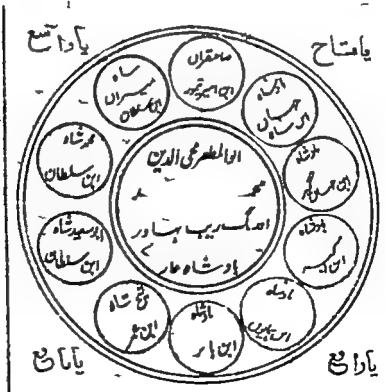 یا فتاح
یا واسع
یا رافع
یا نافع
ابو المظفر محی الدین
محمد
اورنگ زیب بہادر
بادشاہ غازی
صاحبقران
ابن امیر تیمور
بادشاہ
جہاں
ابن شاہ
بادشاہ
ابن جہانگیر
بادشاہ
ابن اکبر
بادشاہ
ابن ہمایوں
بادشاہ
ابن بابر
شیخ شاہ
ابن عمر
ابو سعید شاہ
ابن سلطان
محمد شاہ
ابن سلطان
شاہ
میراں
ابن سلطان